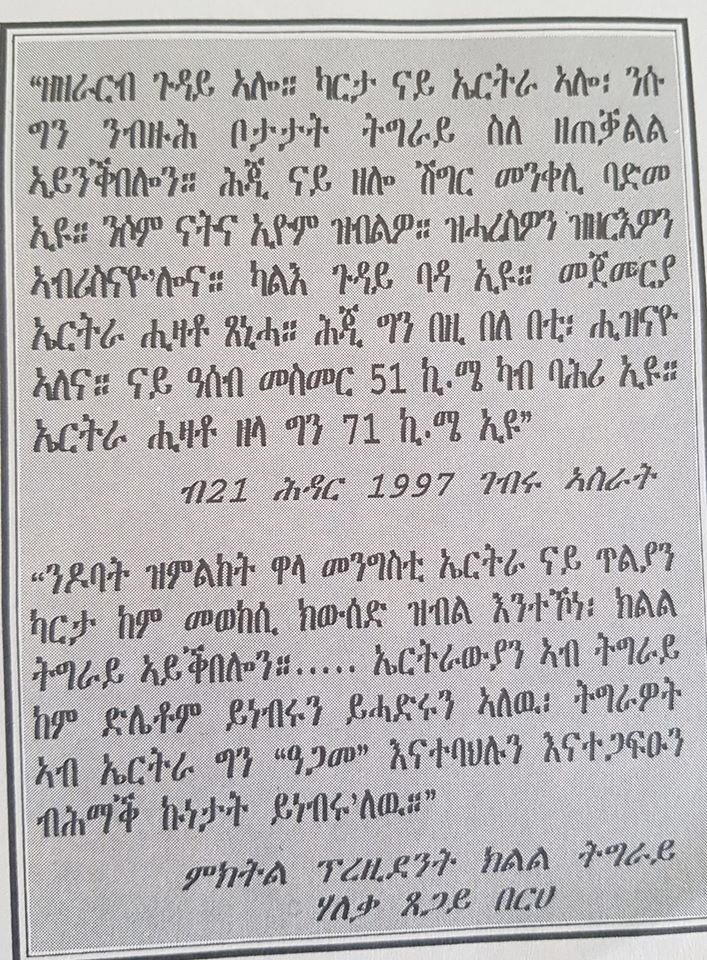 “ዝዘራርብ ጉዳይ ኣሎ። ካርታ ናይ ኤርትራ ኣሎ፤ ንሱ
ግን ንብዙሕ ቦታታት ትግራይ ስለ ዘጠቓልል
ኣይንቕበሎን። ሕጂ ናይ ዘሎ ሽግር መንቀሊ ባድመ
ኢዩ። ንሶም ናትና ኢዮም ዝብልዎ። ዝሓረስዎን ዝዘርእዎን
ኣብሪስናዮ’ሎና። ካልእ ጉዳይ ባዳ ኢዩ። መጀመርያ
ኤርትራ ሒዛቶ ጸኒሓ። ሕጂ ግን በዚ በለ በቲ፤ ሒዝናዮ
ኣለና። ናይ ዓሰብ መስመር 51 ኪ.ሜ ካብ ባሕሪ ኢዩ።
ኤርትራ ሒዛቶ ዘላ ግን 71 ኪ.ሜ ኢዩ”
ብ21 ሕዳር 1997 ገብሩ ኣስራት
“ንዶባት ዝምልከት ዋላ መንግስቲ ኤርትራ ናይ ጥልያን
ካርታ ከም መወከሲ ክውሰድ ዝብል እንተኾነ፤ ክልል
ትግራይ ኣይቕበሎን።..... ኤርትራውያን ኣብ ትግራይ
ከም ድሌቶም ይነብሩን ይሓድሩን ኣለዉ፤ ትግራዎት
ኣብ ኤርትራ ግን “ዓጋመ” እናተባህሉን እናተጋፍዑን
ብሕማቕ ኩነታት ይነብሩ’ለዉ።”
ምክትል ፕረዚደንት ክልል ትግራይ
ሃለቃ ጸጋይ በርሀ